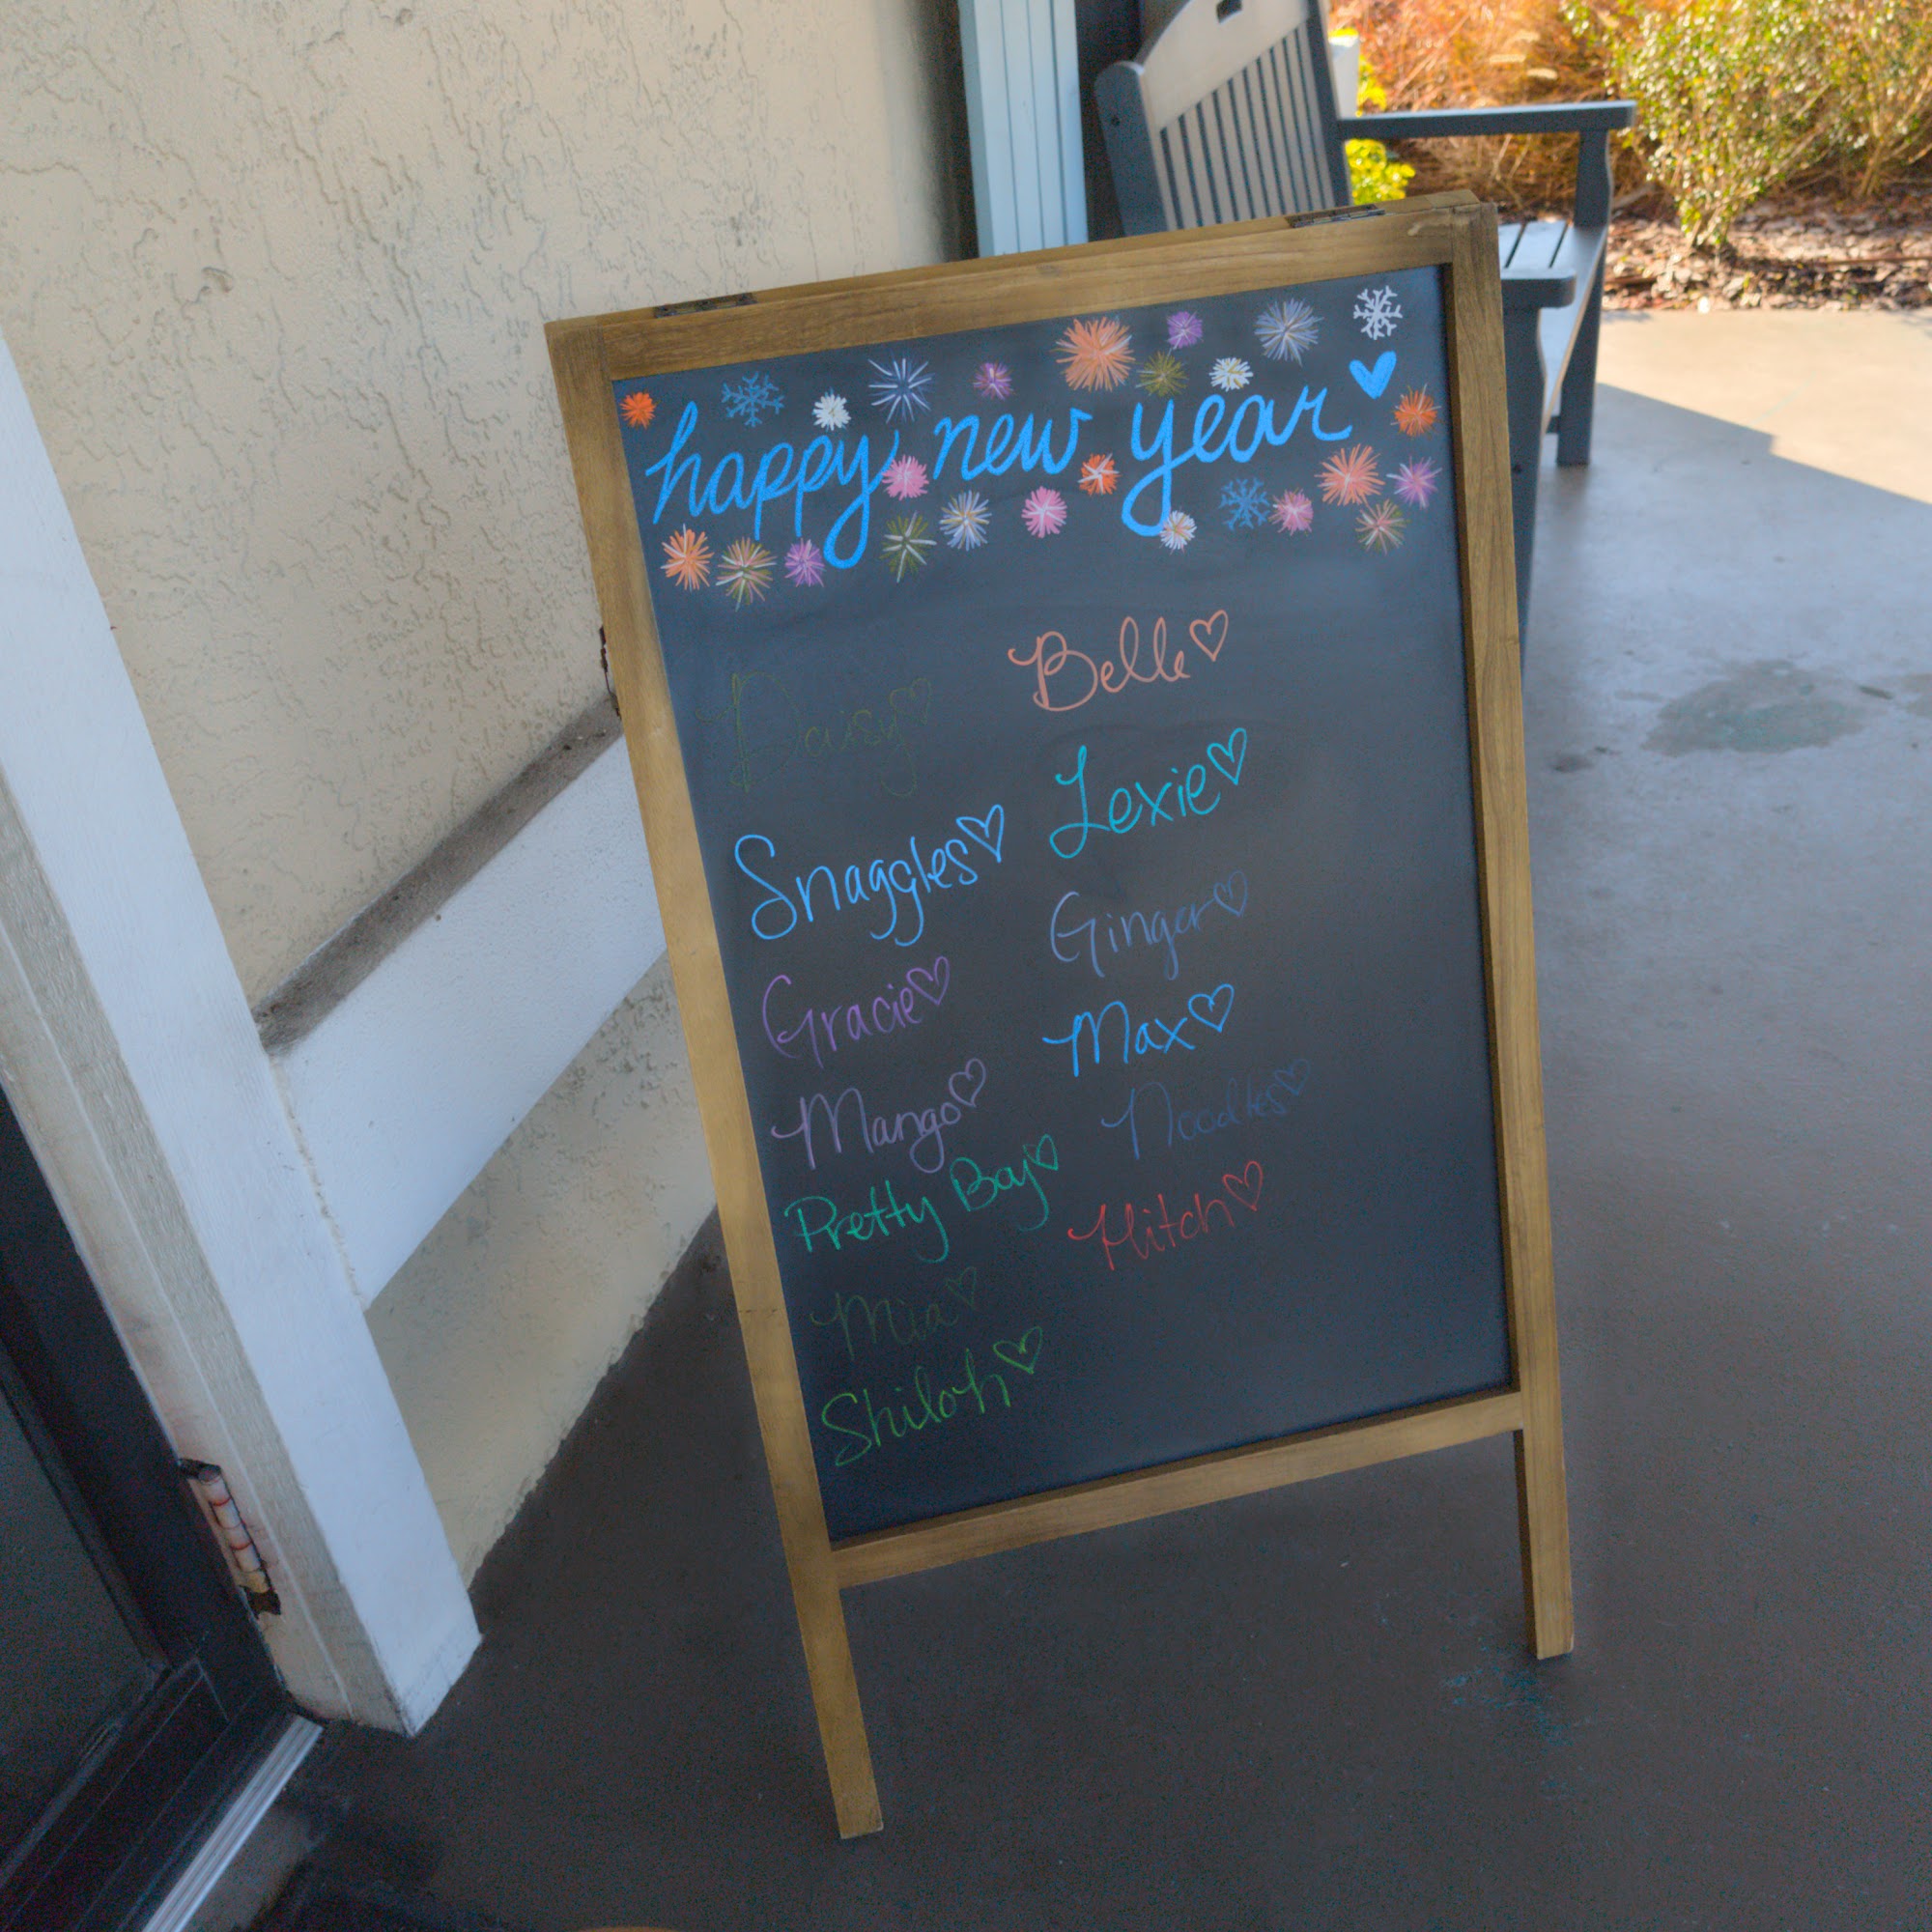 happy new year
Daisy
Snaggles
Gracie
Mango
Pretty Boy
Mia
Shiloh
Belle
Lexie
Ginger
Max
Noodles
Hitch